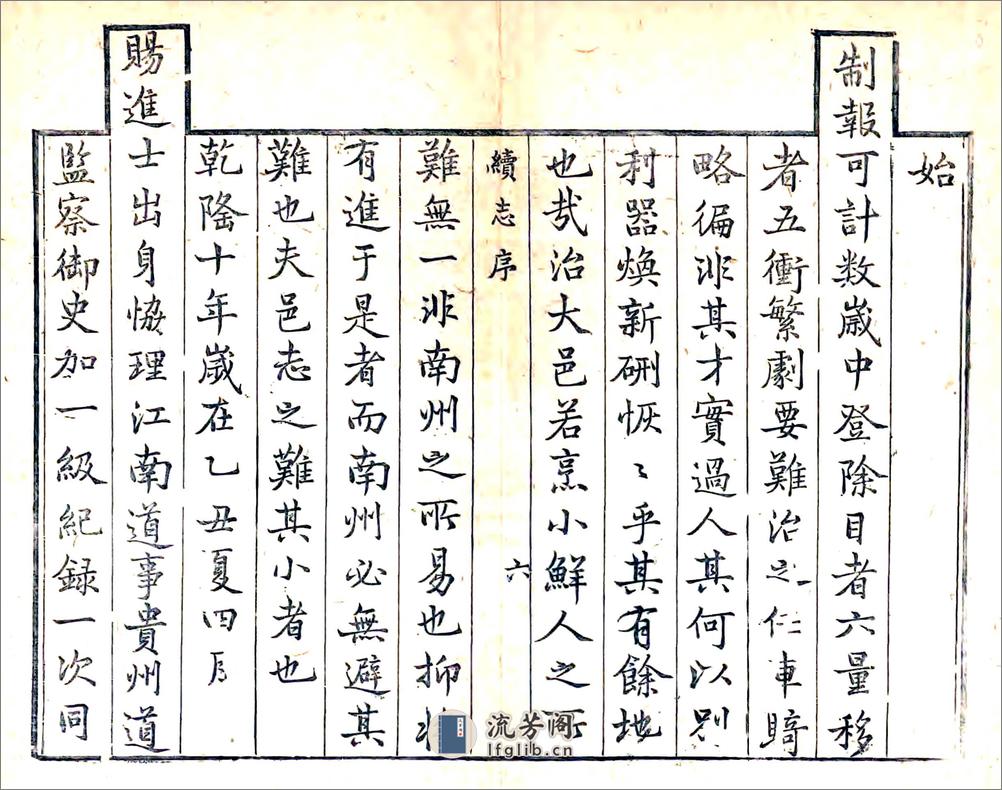 始
制報可計数歳中登除目者六量移
者五衝繁劇要難治之仁車騎
略徧非其才實過人其何以别
利器煥新硎恢〻乎其有餘地
也哉治大邑若烹小鮮人之所
續志序 六
難無一非南州之所易也抑
有進于是者而南州必無避其
難也夫邑志之難其小者也
乾隆十年歳在乙丑夏四月
賜進士出身協理江南道事貴州道
監察御史加一級紀録一次同
流芳阁
lfglib.cn